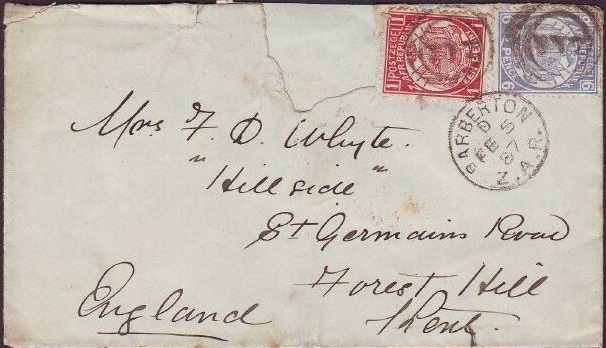 1 POSTZEGEL 1
Z. AFR. REPUBLIEK
1 EEN PENNY 1
6
PENCE
6 6
BARBERTON
FE 5
87
Z.A.R.
Mrs F. D. Whyte.
"Hill side"
St Germains Road
Forest Hill
England Kent.